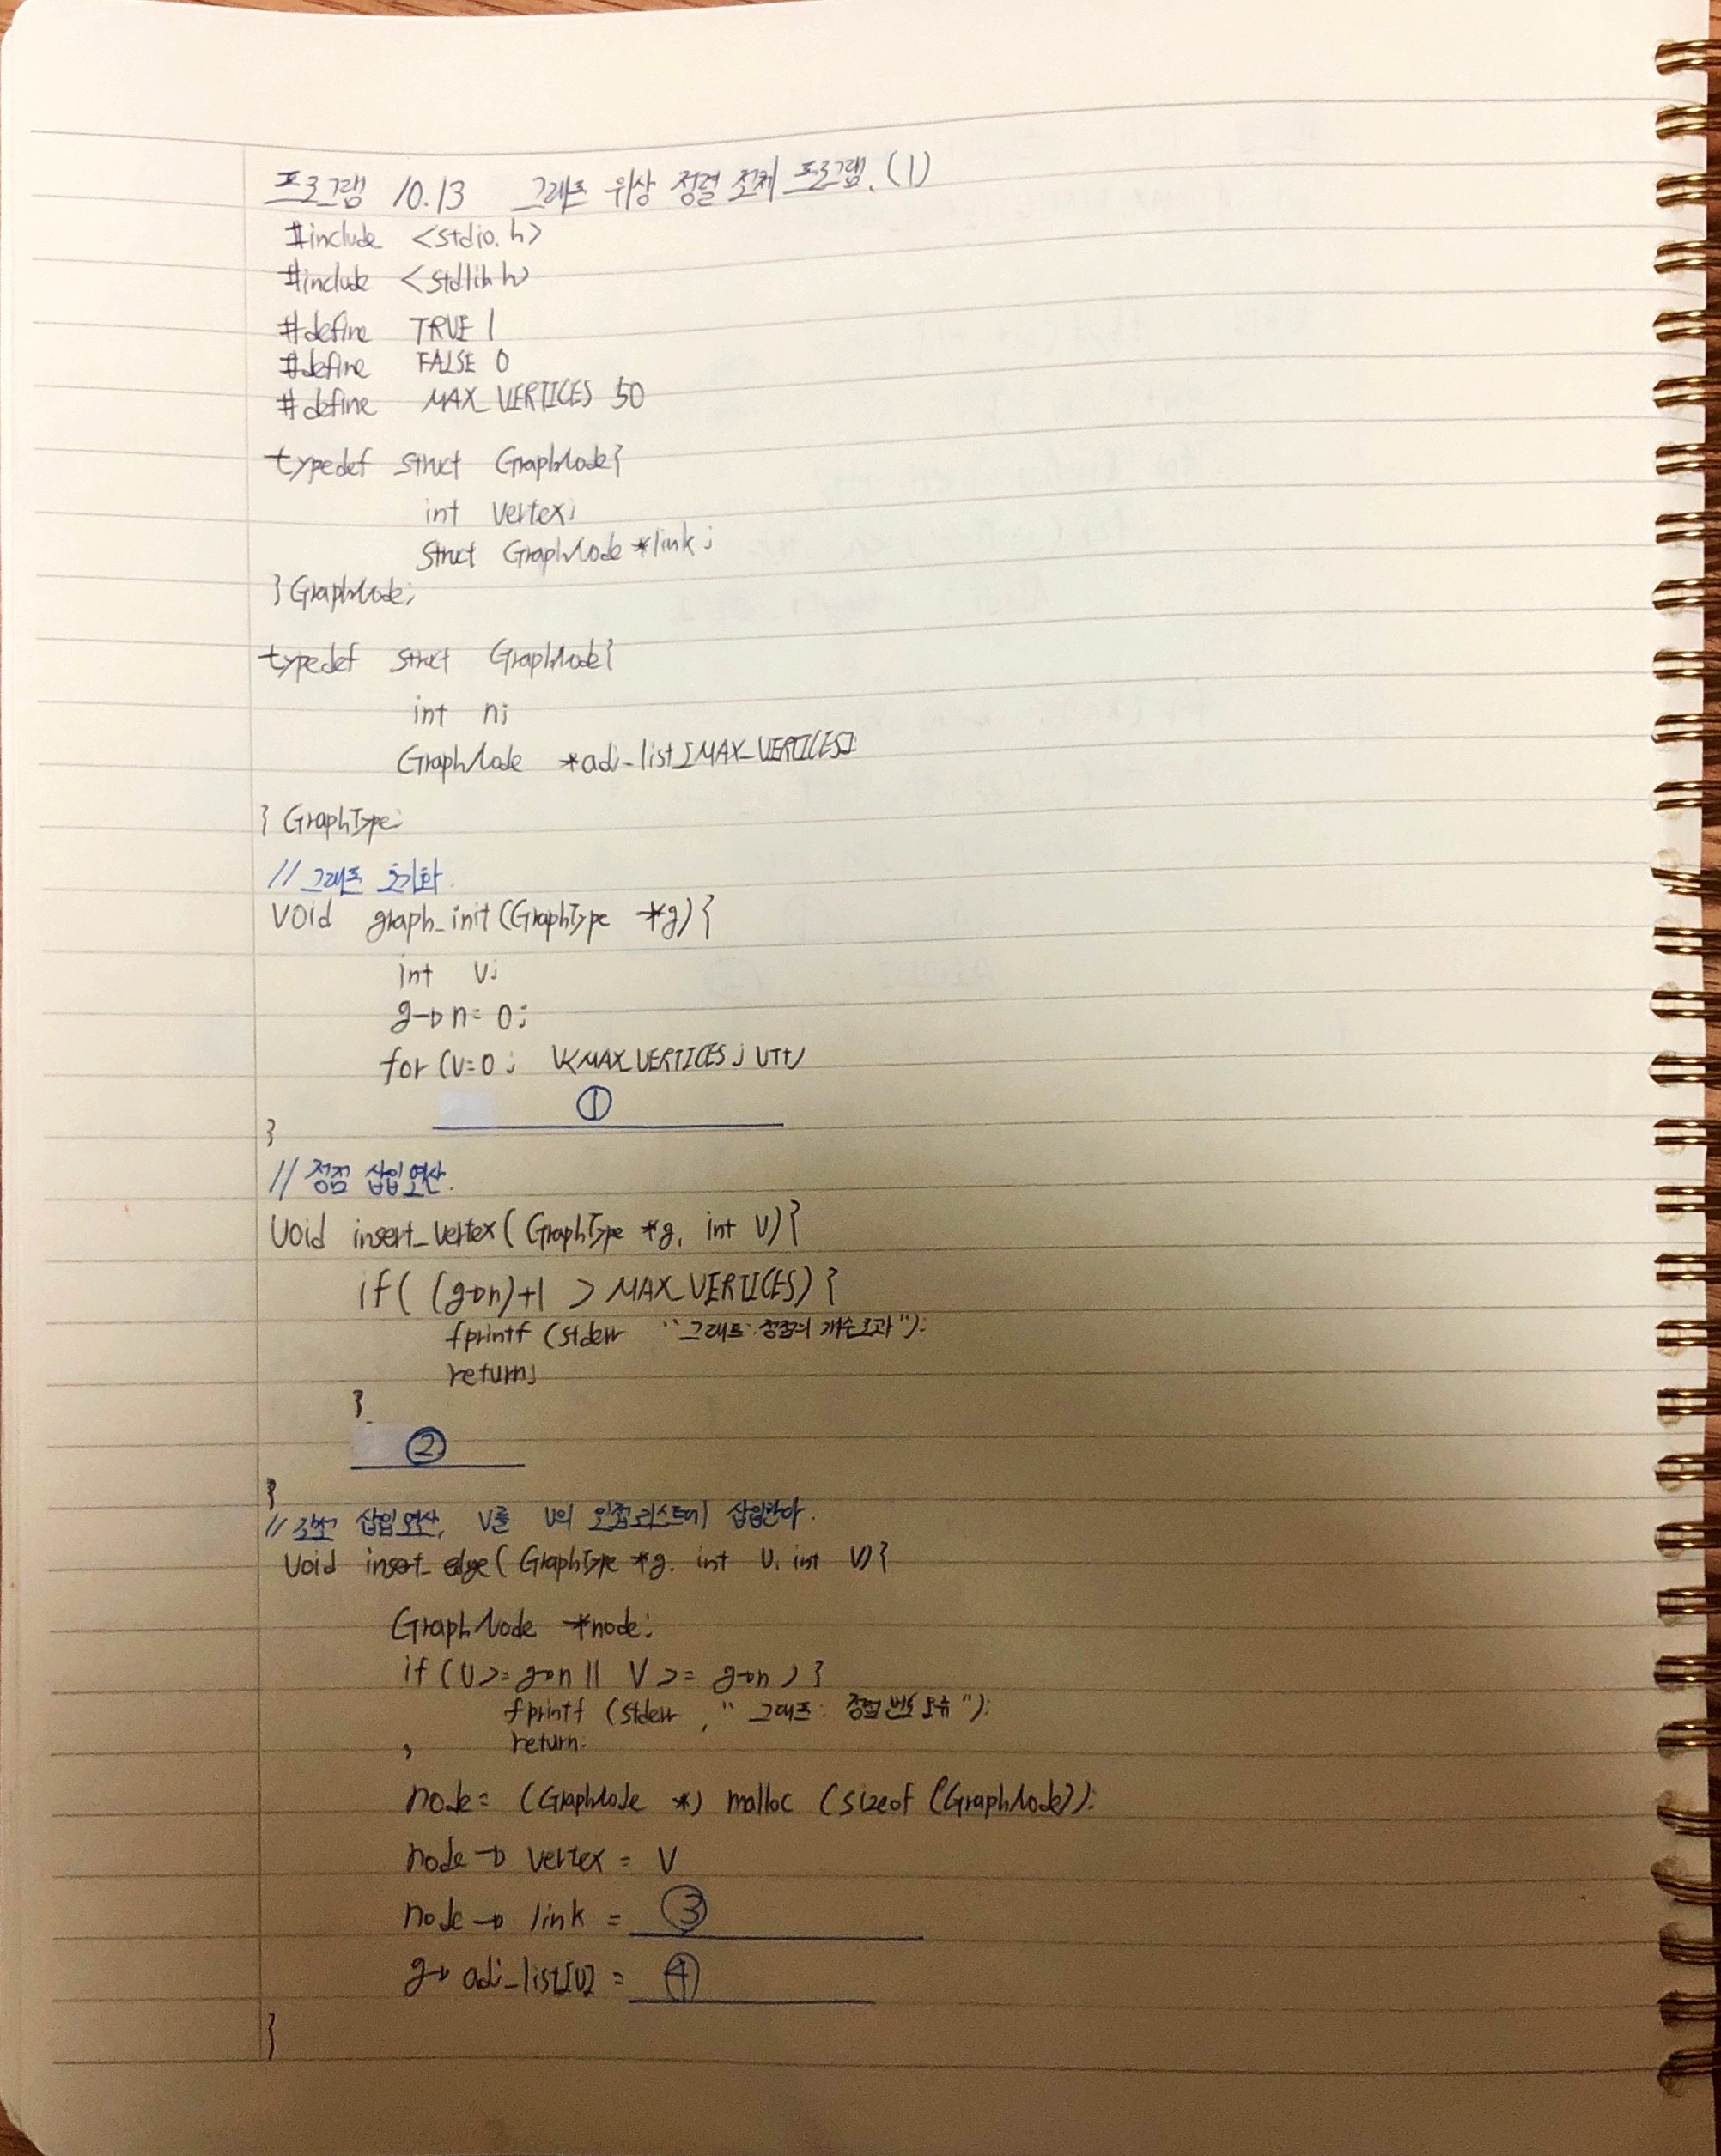 프로그램 10.13 그래프 위상 정렬 전체 프로그램. (1)
#include <stdio.h>
#include <stdlib.h>
#define TRUE 1
#define FALSE 0
#define MAX_VERTICES 50
typedef struct GraphNode{
int vertex;
struct GraphNode *link;
} GraphNode;
typedef struct GraphNode{
int n;
GraphNode *adj_list[MAX_VERTICES];
} GraphType;
// 그래프 초기화.
void graph_init(GraphType *g){
int v;
g->n = 0;
for (v=0; v<MAX_VERTICES; v++)
①
}
// 정점 삽입 연산.
void insert_vertex( GraphType *g, int v){
if( (g->n)+1 > MAX_VERTICES) {
fprintf (stderr "그래프: 정점의 개수 초과");
return;
}
②
}
// 간선 삽입 연산, v를 u의 인접 리스트에 삽입한다.
void insert_edge( GraphType *g, int u, int v){
GraphNode *node;
if (u >= g->n || v >= g->n ) {
fprintf (stderr , " 그래프: 정점 번호 오류");
} return;
node = (GraphNode *) malloc (sizeof (GraphNode));
node -> vertex = v
node -> link = ③
g-> adj_list[u] = ④
}